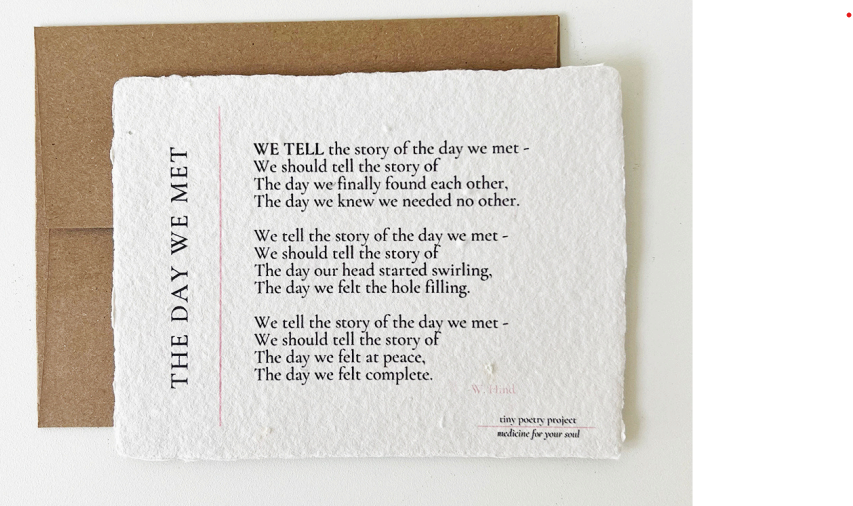 THE DAY WE MET
WE TELL the story of the day we met -
We should tell the story of
The day we finally found each other,
The day we knew we needed no other.
We tell the story of the day we met -
We should tell the story of
The day our head started swirling,
The day we felt the hole filling.
We tell the story of the day we met -
We should tell the story of
The day we felt at peace,
The day we felt complete.
W.
tiny poetry project
medicine for your soul